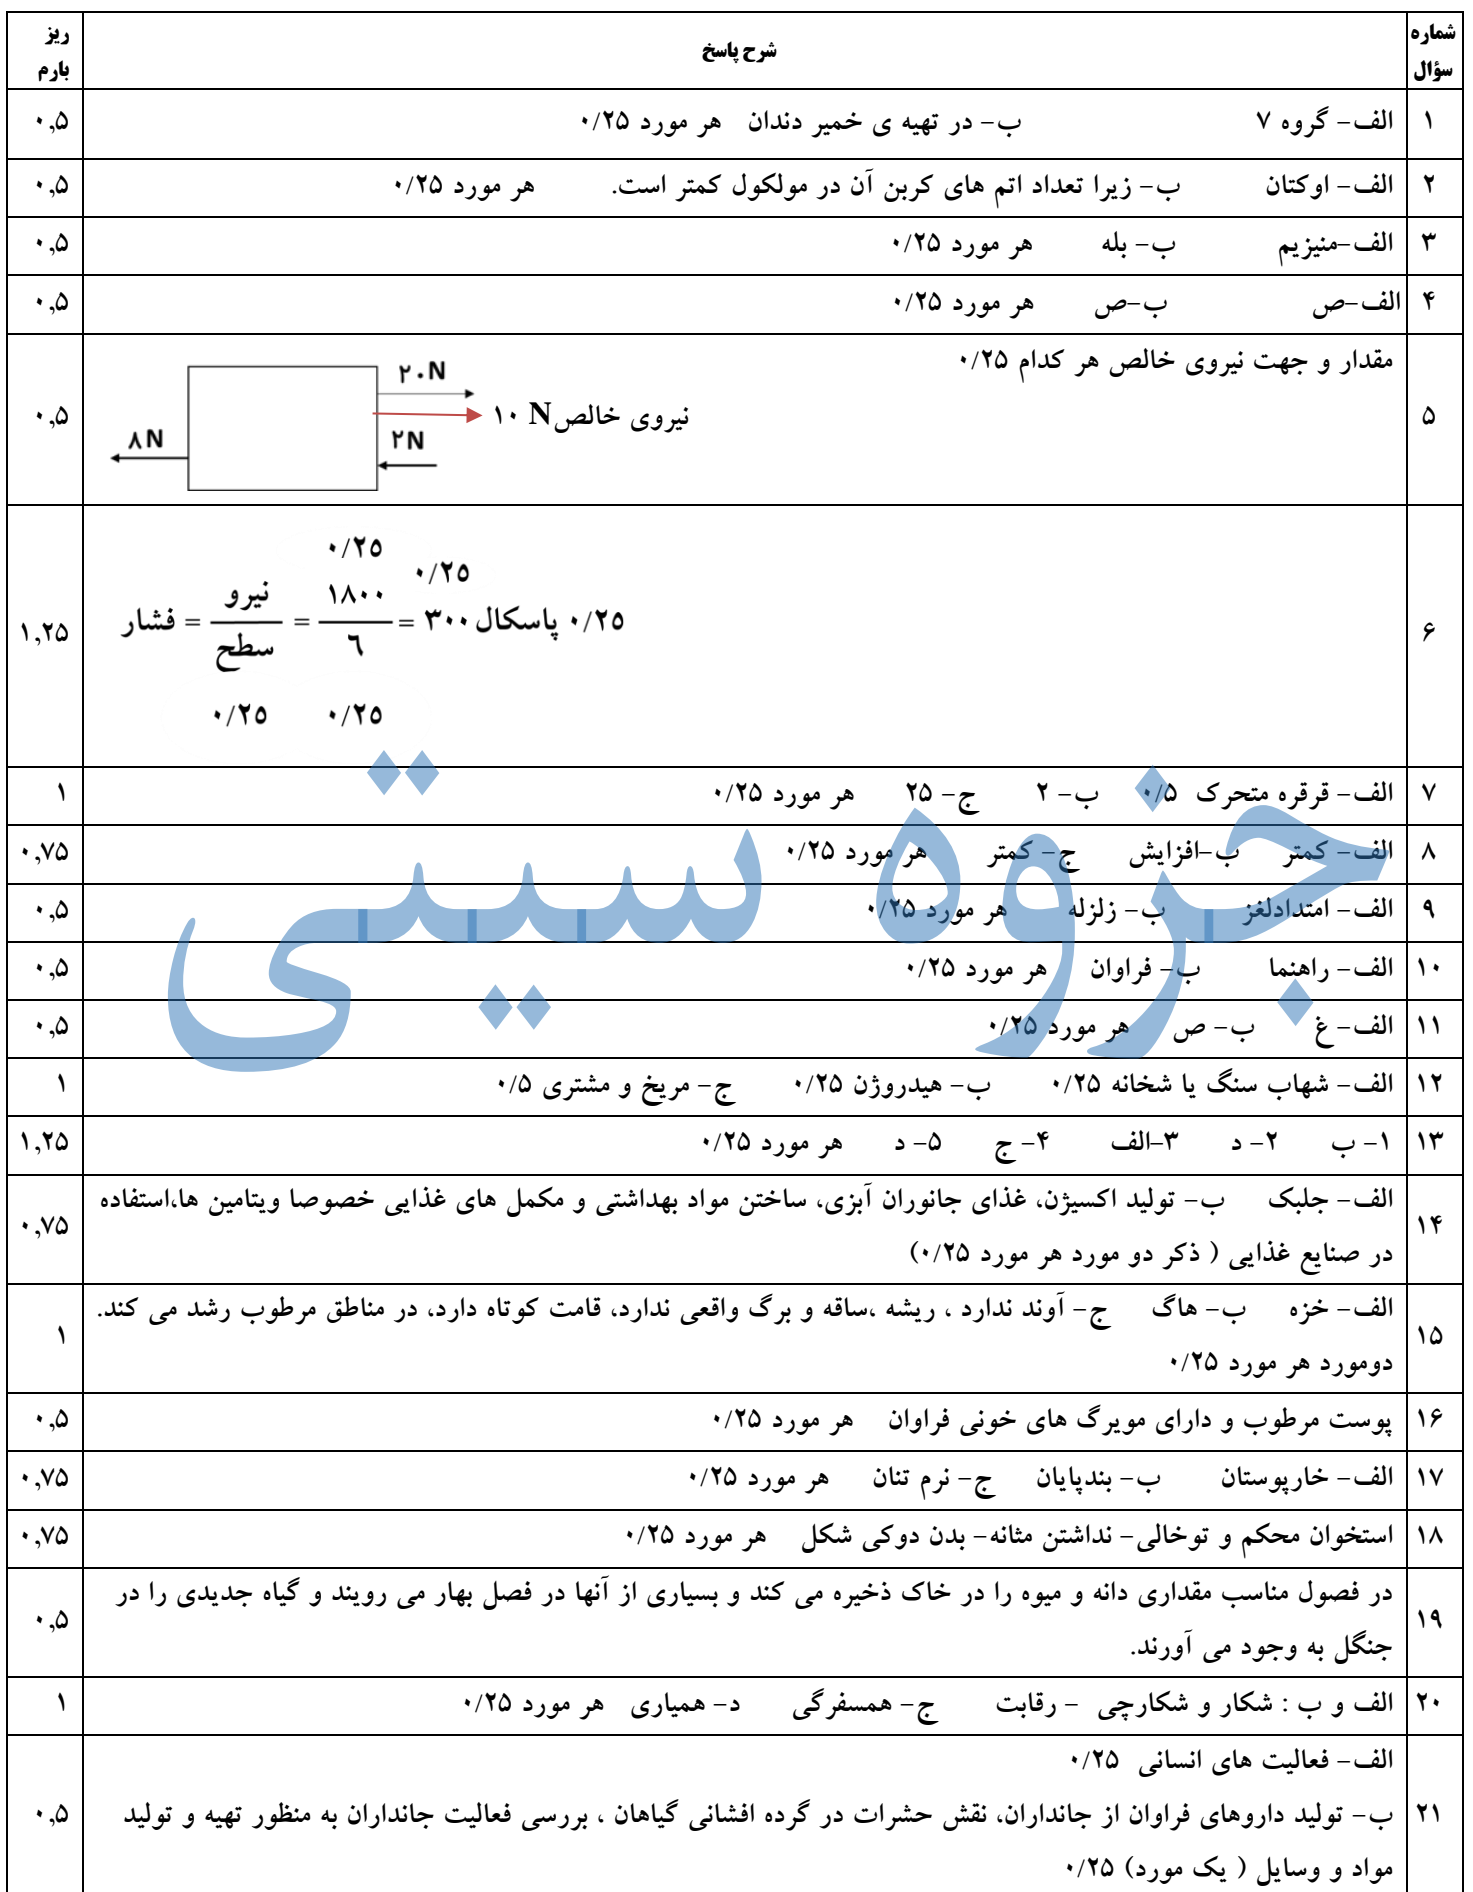 شماره سؤال	شرح پاسخ	ریز بارم
۱	الف- گروه ۷	ب- در تهیه ی خمیر دندان هر مورد ۰/۲۵	۰,۵
۲	الف- اوکتان	ب- زیرا تعداد اتم های کربن آن در مولکول کمتر است.	هر مورد ۰/۲۵	۰,۵
۳	الف-منیزیم	ب- بله	هر مورد ۰/۲۵	۰,۵
۴	الف-ص	ب-ص	هر مورد ۰/۲۵	۰,۵
مقدار و جهت نیروی خالص هر کدام ۰/۲۵
۲۰N
۵	نیروی خالص ۱۰ N	۰,۵
۸N	۲N
۰/۲۵
۰/۲۵
۶	فشار = نیرو / سطح = ۱۸۰۰ / ۶ = ۳۰۰ پاسکال ۰/۲۵	۱,۲۵
۰/۲۵	۰/۲۵
۷	الف- قرقره متحرک ۰/۵	ب- ۲	ج- ۲۵	هر مورد ۰/۲۵	۱
۸	الف- کمتر	ب-افزایش	ج- کمتر	هر مورد ۰/۲۵	۰,۷۵
۹	الف- امتدادلغز	ب- زلزله	هر مورد ۰/۲۵	۰,۵
جزوه سیتی
۱۰	الف- راهنما	ب- فراوان	هر مورد ۰/۲۵	۰,۵
۱۱	الف- غ	ب- ص	هر مورد ۰/۲۵	۰,۵
۱۲	الف- شهاب سنگ یا شخانه ۰/۲۵	ب- هیدروژن ۰/۲۵	ج- مریخ و مشتری ۰/۵	۱
۱۳	۱- ب	۲- د	۳-الف	۴- ج	۵- د	هر مورد ۰/۲۵	۱,۲۵
۱۴	الف- جلبک	ب- تولید اکسیژن، غذای جانوران آبزی، ساختن مواد بهداشتی و مکمل های غذایی خصوصا ویتامین ها،استفاده	۰,۷۵
در صنایع غذایی ( ذکر دو مورد هر مورد ۰/۲۵)
۱۵	الف- خزه	ب- هاگ	ج- آوند ندارد ، ریشه ،ساقه و برگ واقعی ندارد، قامت کوتاه دارد، در مناطق مرطوب رشد می کند.	۱
دومورد هر مورد ۰/۲۵
۱۶	پوست مرطوب و دارای مویرگ های خونی فراوان	هر مورد ۰/۲۵	۰,۵
۱۷	الف- خارپوستان	ب- بندپایان	ج- نرم تنان	هر مورد ۰/۲۵	۰,۷۵
۱۸	استخوان محکم و توخالی- نداشتن مثانه- بدن دوکی شکل	هر مورد ۰/۲۵	۰,۷۵
۱۹	در فصول مناسب مقداری دانه و میوه را در خاک ذخیره می کند و بسیاری از آنها در فصل بهار می رویند و گیاه جدیدی را در	۰,۵
جنگل به وجود می آورند.
۲۰	الف و ب : شکار و شکارچی - رقابت	ج- همسفرگی	د- همیاری	هر مورد ۰/۲۵	۱
الف- فعالیت های انسانی ۰/۲۵
۲۱	ب- تولید داروهای فراوان از جانداران، نقش حشرات در گرده افشانی گیاهان ، بررسی فعالیت جانداران به منظور تهیه و تولید	۰,۵
مواد و وسایل ( یک مورد) ۰/۲۵